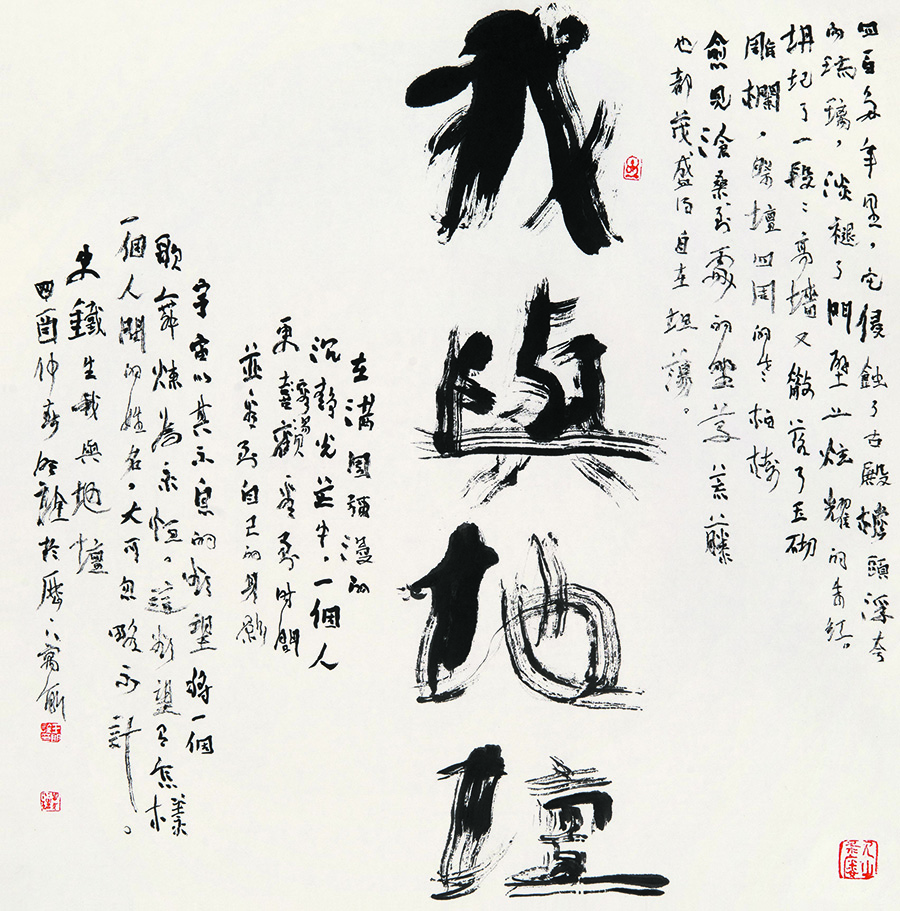 四百多年里，它侵蝕了古殿檐頭浮夸
的琉璃，淡褪了門壁上炫耀的朱紅。
坍圮了一段〻高墻又散落了玉砌
雕欄，祭壇四周的老柏樹
愈見滄桑到處的野草荒藤
也都茂盛得自在坦蕩。
我與地壇
在滿園彌漫的
沉靜光芒中，一個人
更看到時間
並看到自己的身影
宇宙以其不息的欲望將一個
歌舞煉為永恒。這欲望有怎樣
一個人間的姓名，大可忽略不計。
史鐵生我與地壇
酉仲春於歷下寓所